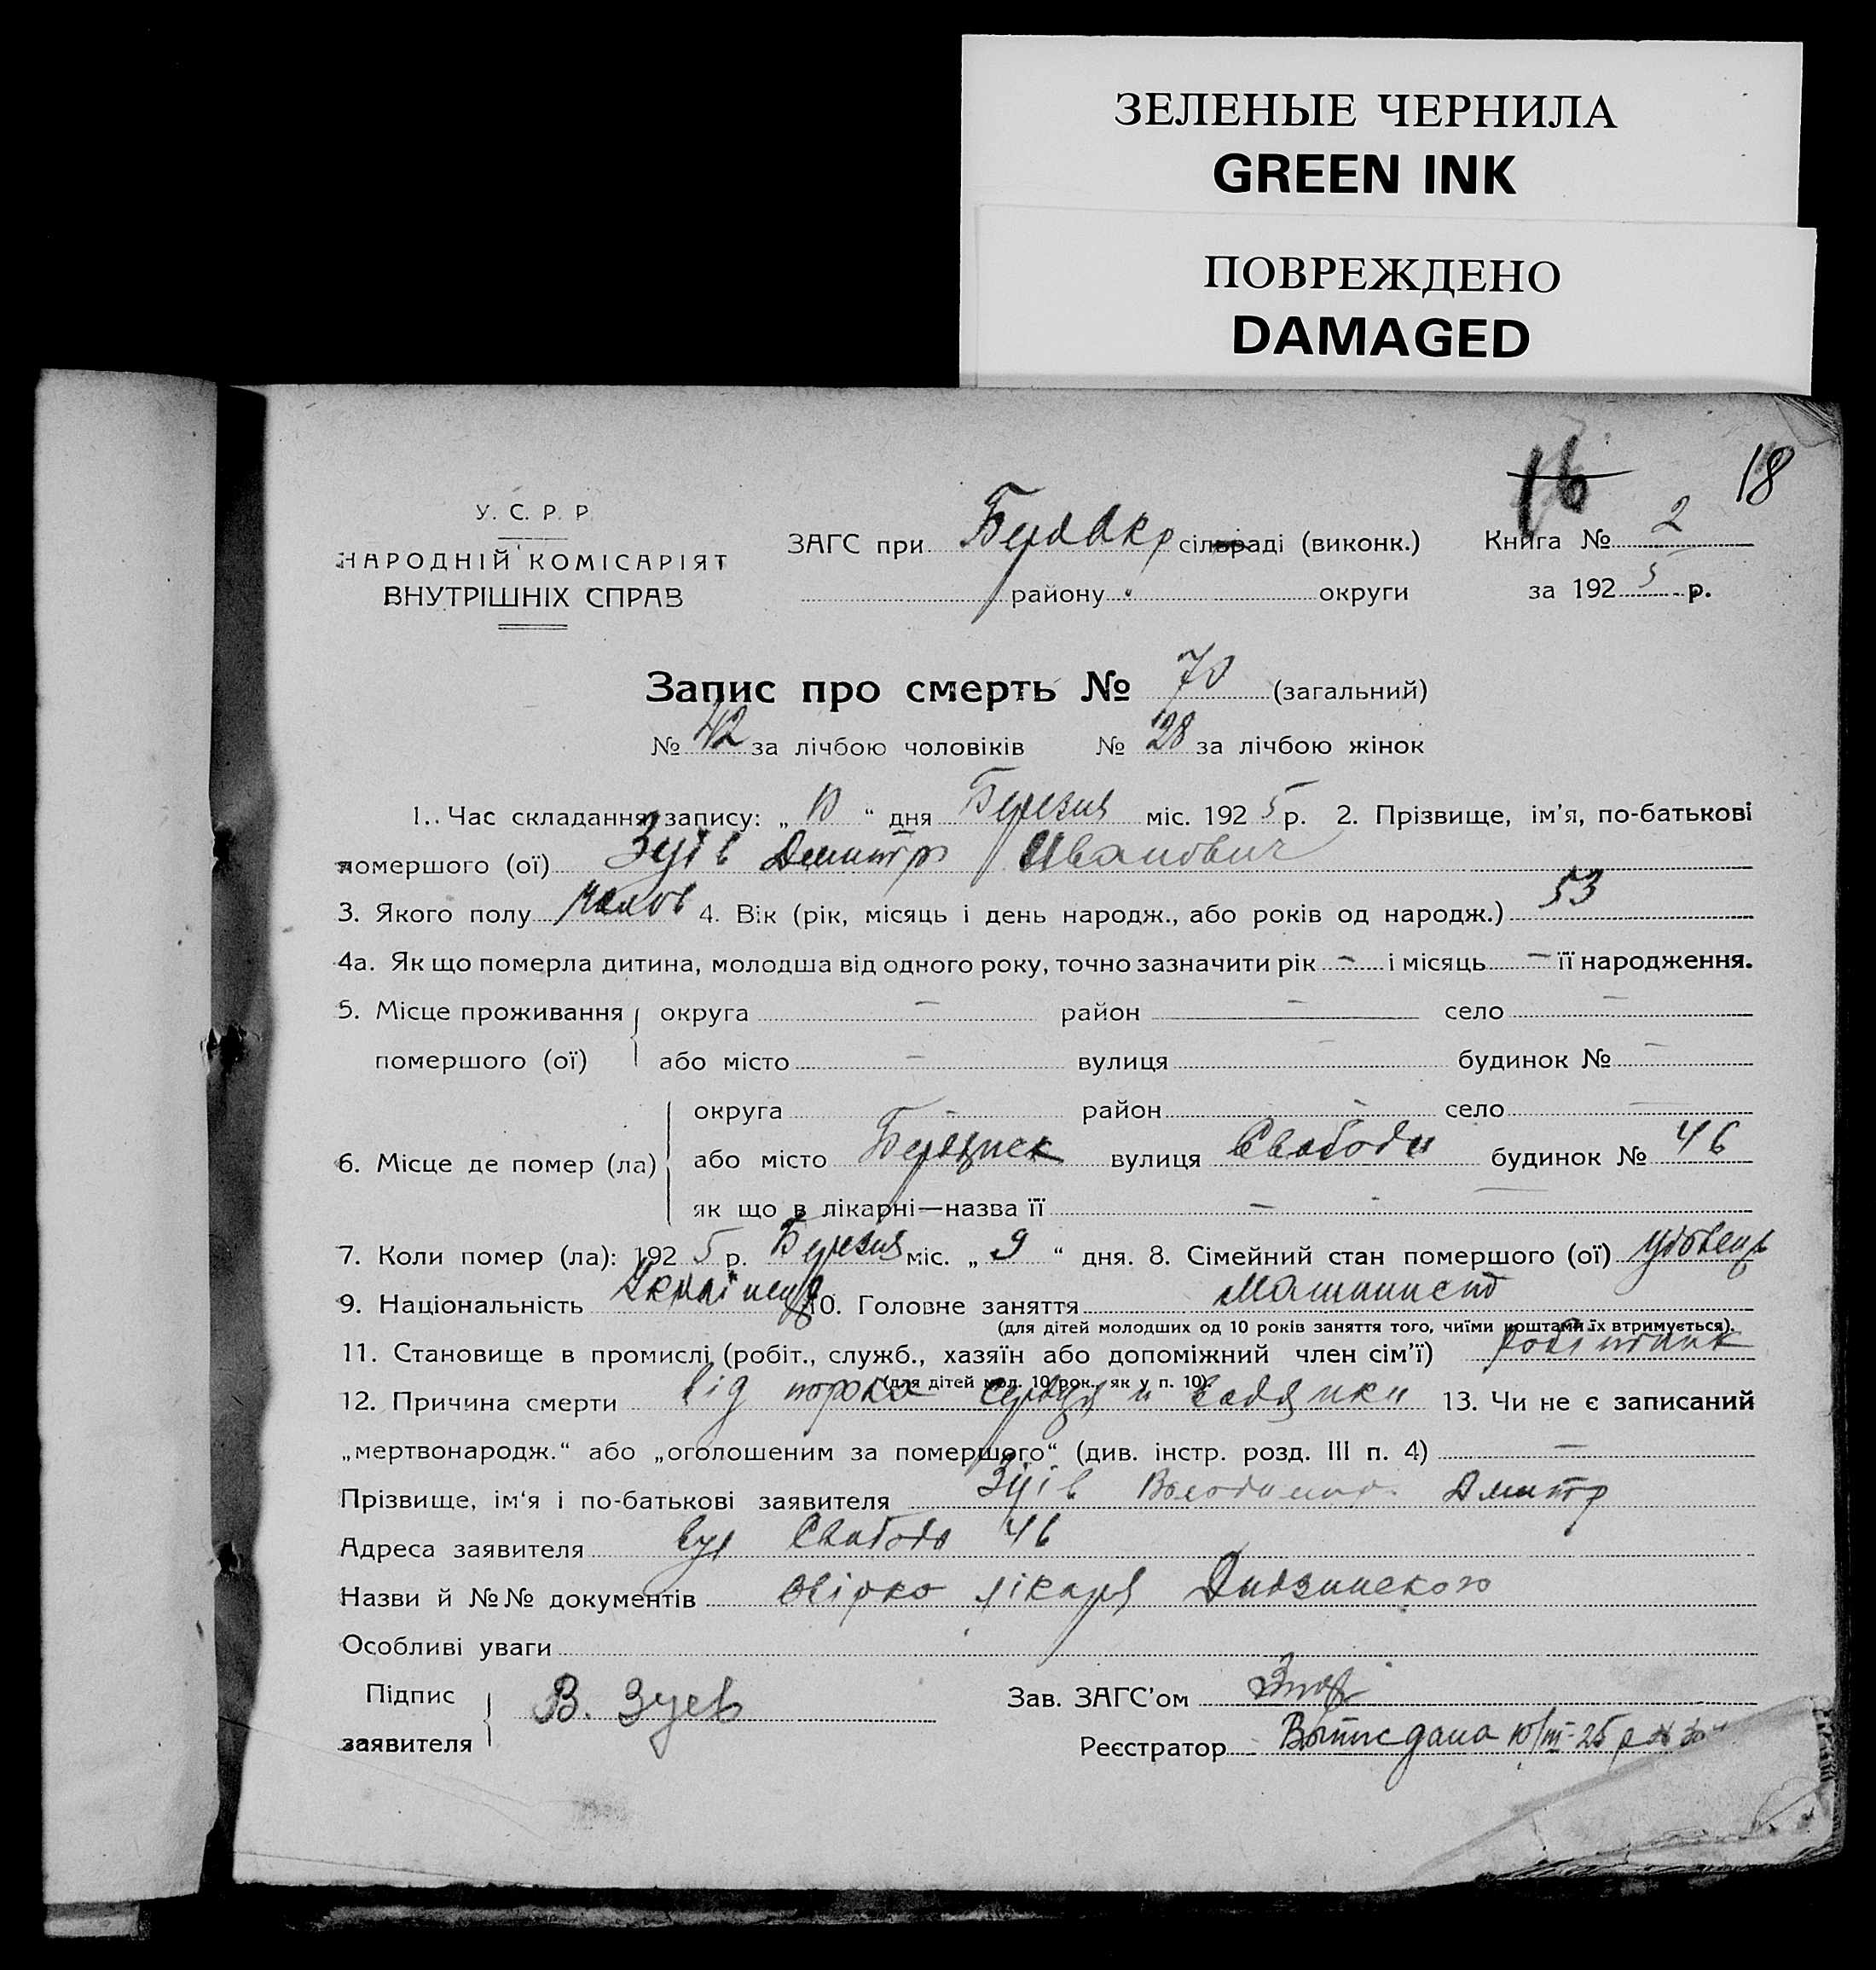 ЗЕЛЕНЫЕ ЧЕРНИЛА
GREEN INK
ПОВРЕЖДЕНО
DAMAGED
16 18
У. С. Р. Р
НАРОДНІЙ КОМІСАРІЯТ
ВНУТРІШНІХ СПРАВ
ЗАГС при сільраді (виконк.) Книга № 2
району округи за 192 5 р.
Запис про смерть № 70 (загальний)
№ 42 за лічбою чоловіків № 28 за лічбою жінок
1. Час складання запису: „ 10 “ дня Березня міс. 192 5 р. 2. Прізвище, ім’я, по-батькові
помершого (ої) Зуів Дмитр Иванович
3. Якого полу чолов 4. Вік (рік, місяць і день народж., або років од народж.) 53
4а. Як що померла дитина, молодша від одного року, точно зазначити рік – і місяць – її народження.
5. Місце проживання округа – район – село –
помершого (ої) або місто – вулиця – будинок № –
округа – район – село –
6. Місце де помер (ла) або місто Бердянск вулиця Свободи будинок № 46
як що в лікарні—назва її –
7. Коли помер (ла): 192 5 р. Березня міс. „ 9 “ дня. 8. Сімейний стан помершого (ої) удовець
9. Національність Українець 10. Головне заняття Машинист
(для дітей молодших од 10 років заняття того, чиїми коштами їх втримується).
11. Становище в промислі (робіт., служб., хазяїн або допоміжний член сім’ї) робітник
(для дітей мол. 10 рок., як у п. 10).
12. Причина смерти від порока сердця и водянки 13. Чи не є записаний
„мертвонародж.“ або „оголошеним за помершого“ (див. інстр. розд. III п. 4) –
Прізвище, ім‘я і по-батькові заявителя Зуів Володимир Дмитр
Адреса заявителя вул Свободи 46
Назви й №№ документів лікаря
Особливі уваги
Підпис
заявителя В. Зуев
Зав. ЗАГС’ом
Реєстратор Выпис дана 10/III-25 р